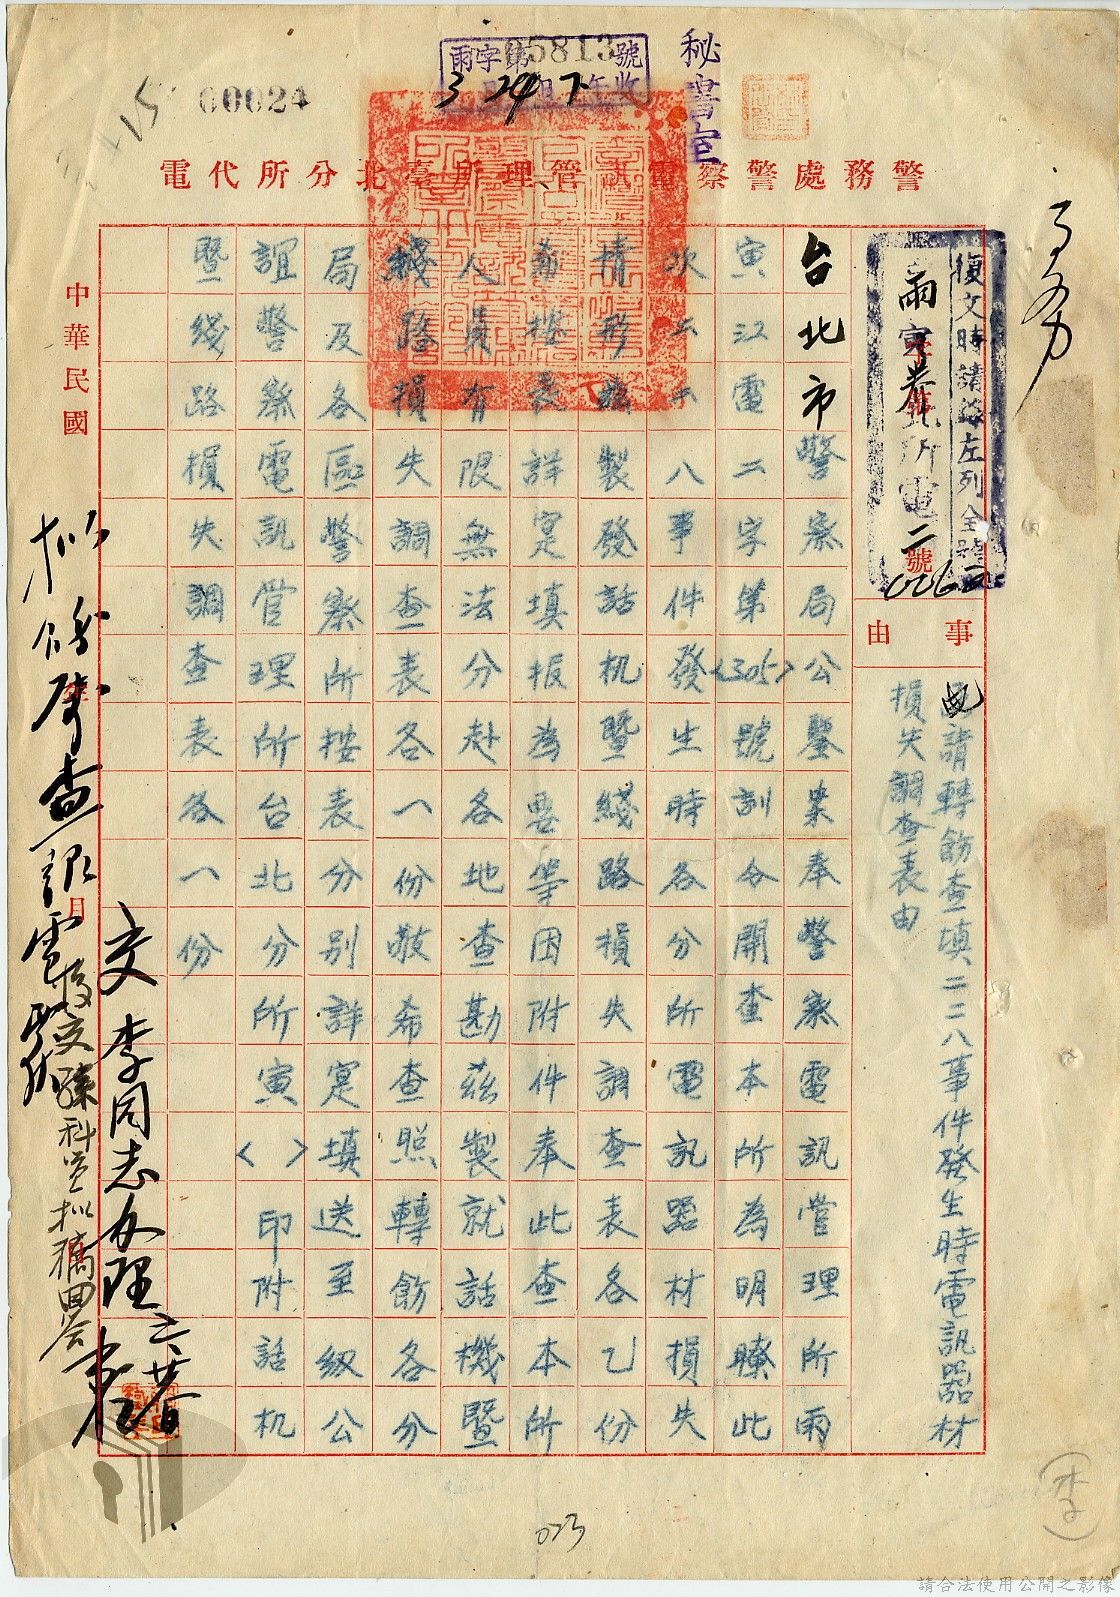 雨字第05813號
3月24日下午收
秘書室
00024
警務處警察電訊管理所臺北分所代電
復文時請落左列全號
雨寅巻北所電二
號
事由
函請轉飭查填二二八事件發生時電訊器材
損失調查表由
台北市警察局公鑒案奉警察電訊管理所雨
寅江電二字第<305>號訓令開查本所為明瞭此
次二二八事件發生時各分所電訊器材損失
情形茲製發話机暨綫路損失調查表各乙份
希按表詳寔填报為要等因附件奉此查本所
人員有限無法分赴各地查勘茲製就話機暨
綫路損失調查表各一份敬希查照轉飭各分
局及各區警察所按表分別詳寔填送至級公
誼警察電訊管理所台北分所寅< >印附話机
暨綫路損失調查表各一份
中華民國 年 月 日
交李同志办理
孫科員拟稿
023
(李)
請合法使用公開之影像